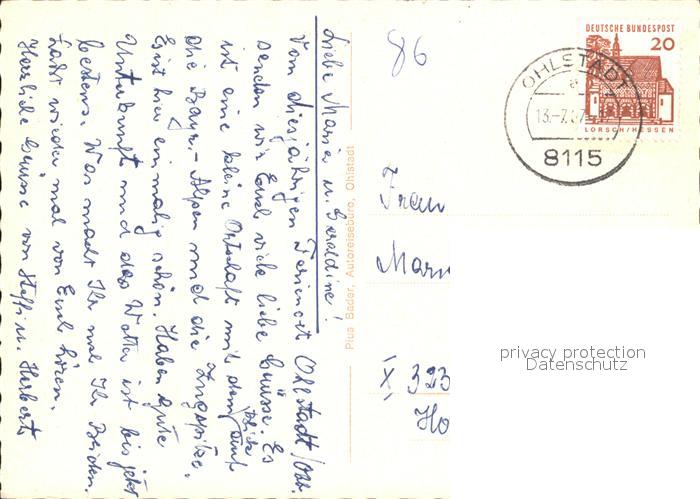 Liebe Maria u. Geraldine!
Vom diesjährigen Ferienort Ohlstadt/Obb.
senden wir Euch viele liebe Grüsse. Es
ist eine kleine Ortschaft mit dem Blick auf
die Bayr.-Alpen und die Zugspitze.
Es ist hier einmalig schön. Haben gute
Unterkunft und das Wetter ist bis jetzt
bestens. Was macht Ihr nun Ihr Beiden.
Laßt wieder mal von Euch hören.
Herzliche Grüsse von Steffi u. Herbert
Pius Bader, Autoreisebüro, Ohlstadt
86
DEUTSCHE BUNDESPOST
20
LORSCH/HESSEN
OHLSTADT
a
13.-7.67
8115
Frau
X 323
Ho
privacy protection
Datenschutz